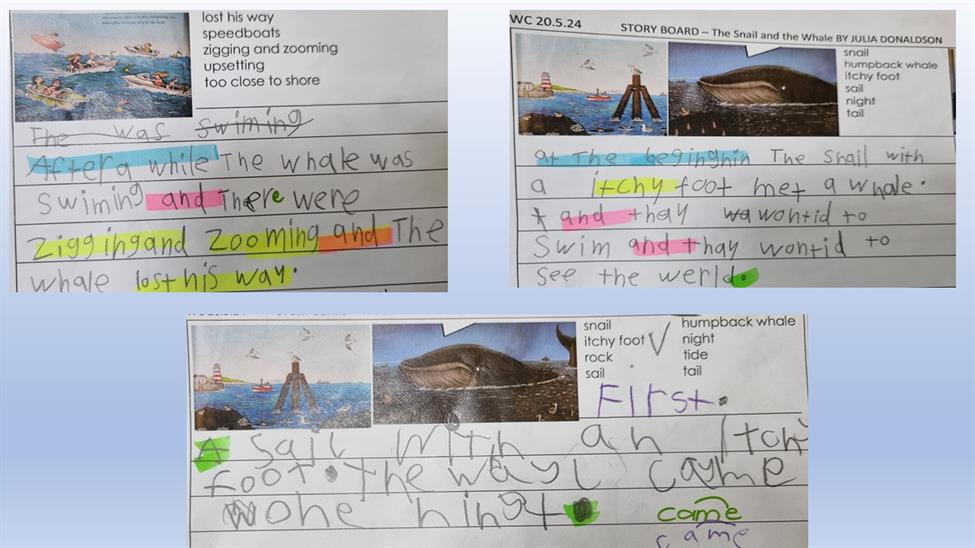 lost his way
speedboats
zigging and zooming
upsetting
too close to shore
The was swiming
After a while The whale was
swiming and There were
Zigging and Zooming and The
whale lost his way.
WC 20.5.24 STORY BOARD – The Snail and the Whale BY JULIA DONALDSON
snail
humpback whale
itchy foot
sail
night
tail
at The begingnin The Snail with
a itchy foot met a whale.
and thay wa wontid to
Swim and thay wontid to
see the werld.
snail
itchy foot
rock
sail
humpback whale
night
tide
tail
First.
A Sail With an Itch
foot. The wayl came
wone hingt.
came
came